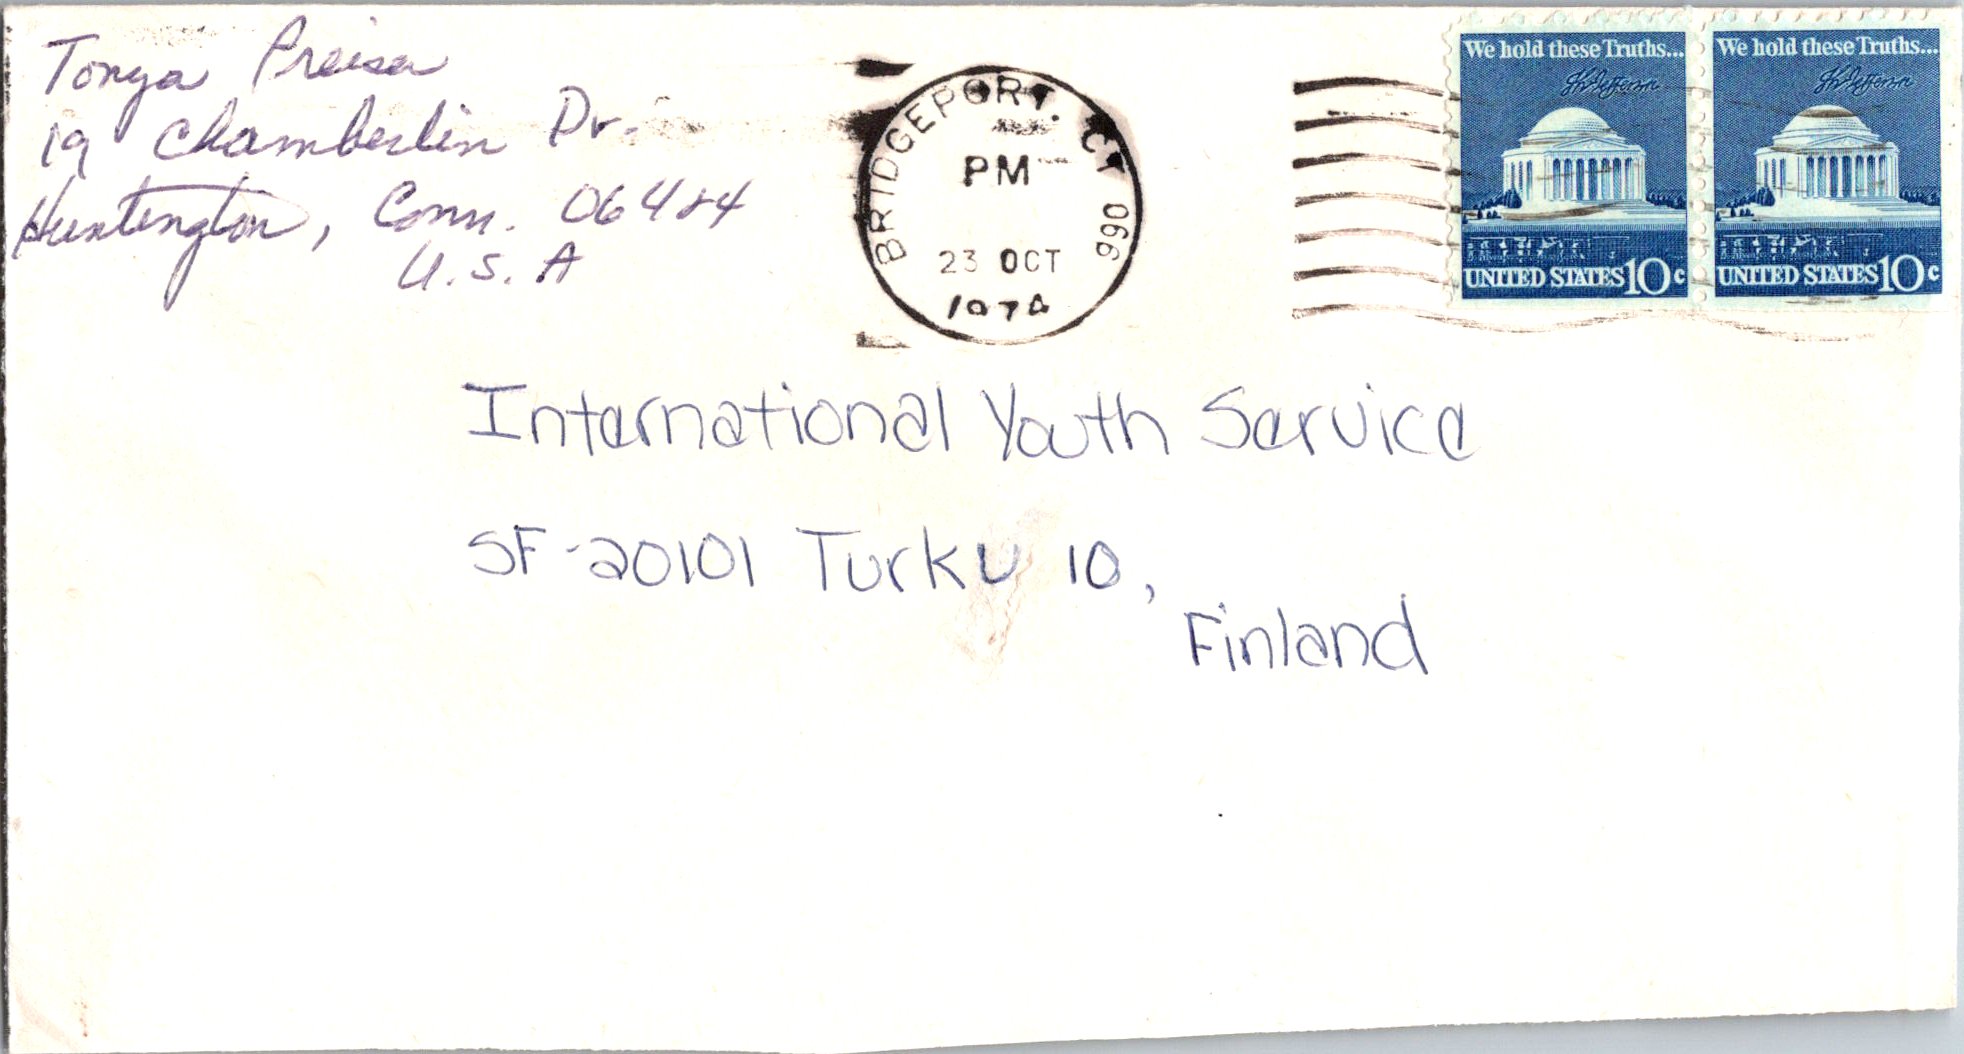 Tonya Preisa
19 Chamberlin Dr.
Huntington, Conn. 06484
U.S.A
BRIDGEPORT, CT 990
PM
23 OCT
1974
We hold these Truths...
Th Jefferson
UNITED STATES 10c
We hold these Truths...
Th Jefferson
UNITED STATES 10c
International Youth Service
SF-20101 Turku 10,
Finland